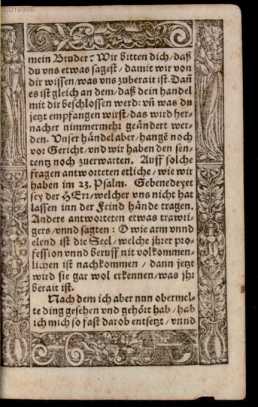 mein Bruder: Wir bitten dich/ daß
du vns etwas sagest/ damit wir von
dir wissen/ was vns zuberait ist. Dañ
es ist gleich an dem/ daß dein handel
mit dir beschlossen werd: vñ was du
jetzt empfangen wirst/ das wird her-
nacher nimmermehr geändert wer-
den. Vnser händel aber/ hangẽ noch
vor Gericht/ vnd wir haben den sen-
tentz noch zuerwarten. Auff solche
fragen antworteten etliche/ wie wir
haben im 23. Psalm. Gebenedeyet
sey der HErr/ welcher vns nicht hat
lassen inn der Feind hände tragen.
Andere antworteten etwas trawri-
gers/ vnnd sagten: O wie arm vnnd
elend ist die Seel/ welche jhrer pro-
fession vnnd beruff nit volkommen-
lichen ist nachkommen/ dann jetzt
wird sie gar wol erkennen/ was jhr
berait ist.
Nach dem ich aber nun obermel-
te ding gesehen vnd gehört hab/ hab
ich mich so fast darob entsetzt/ vnnd